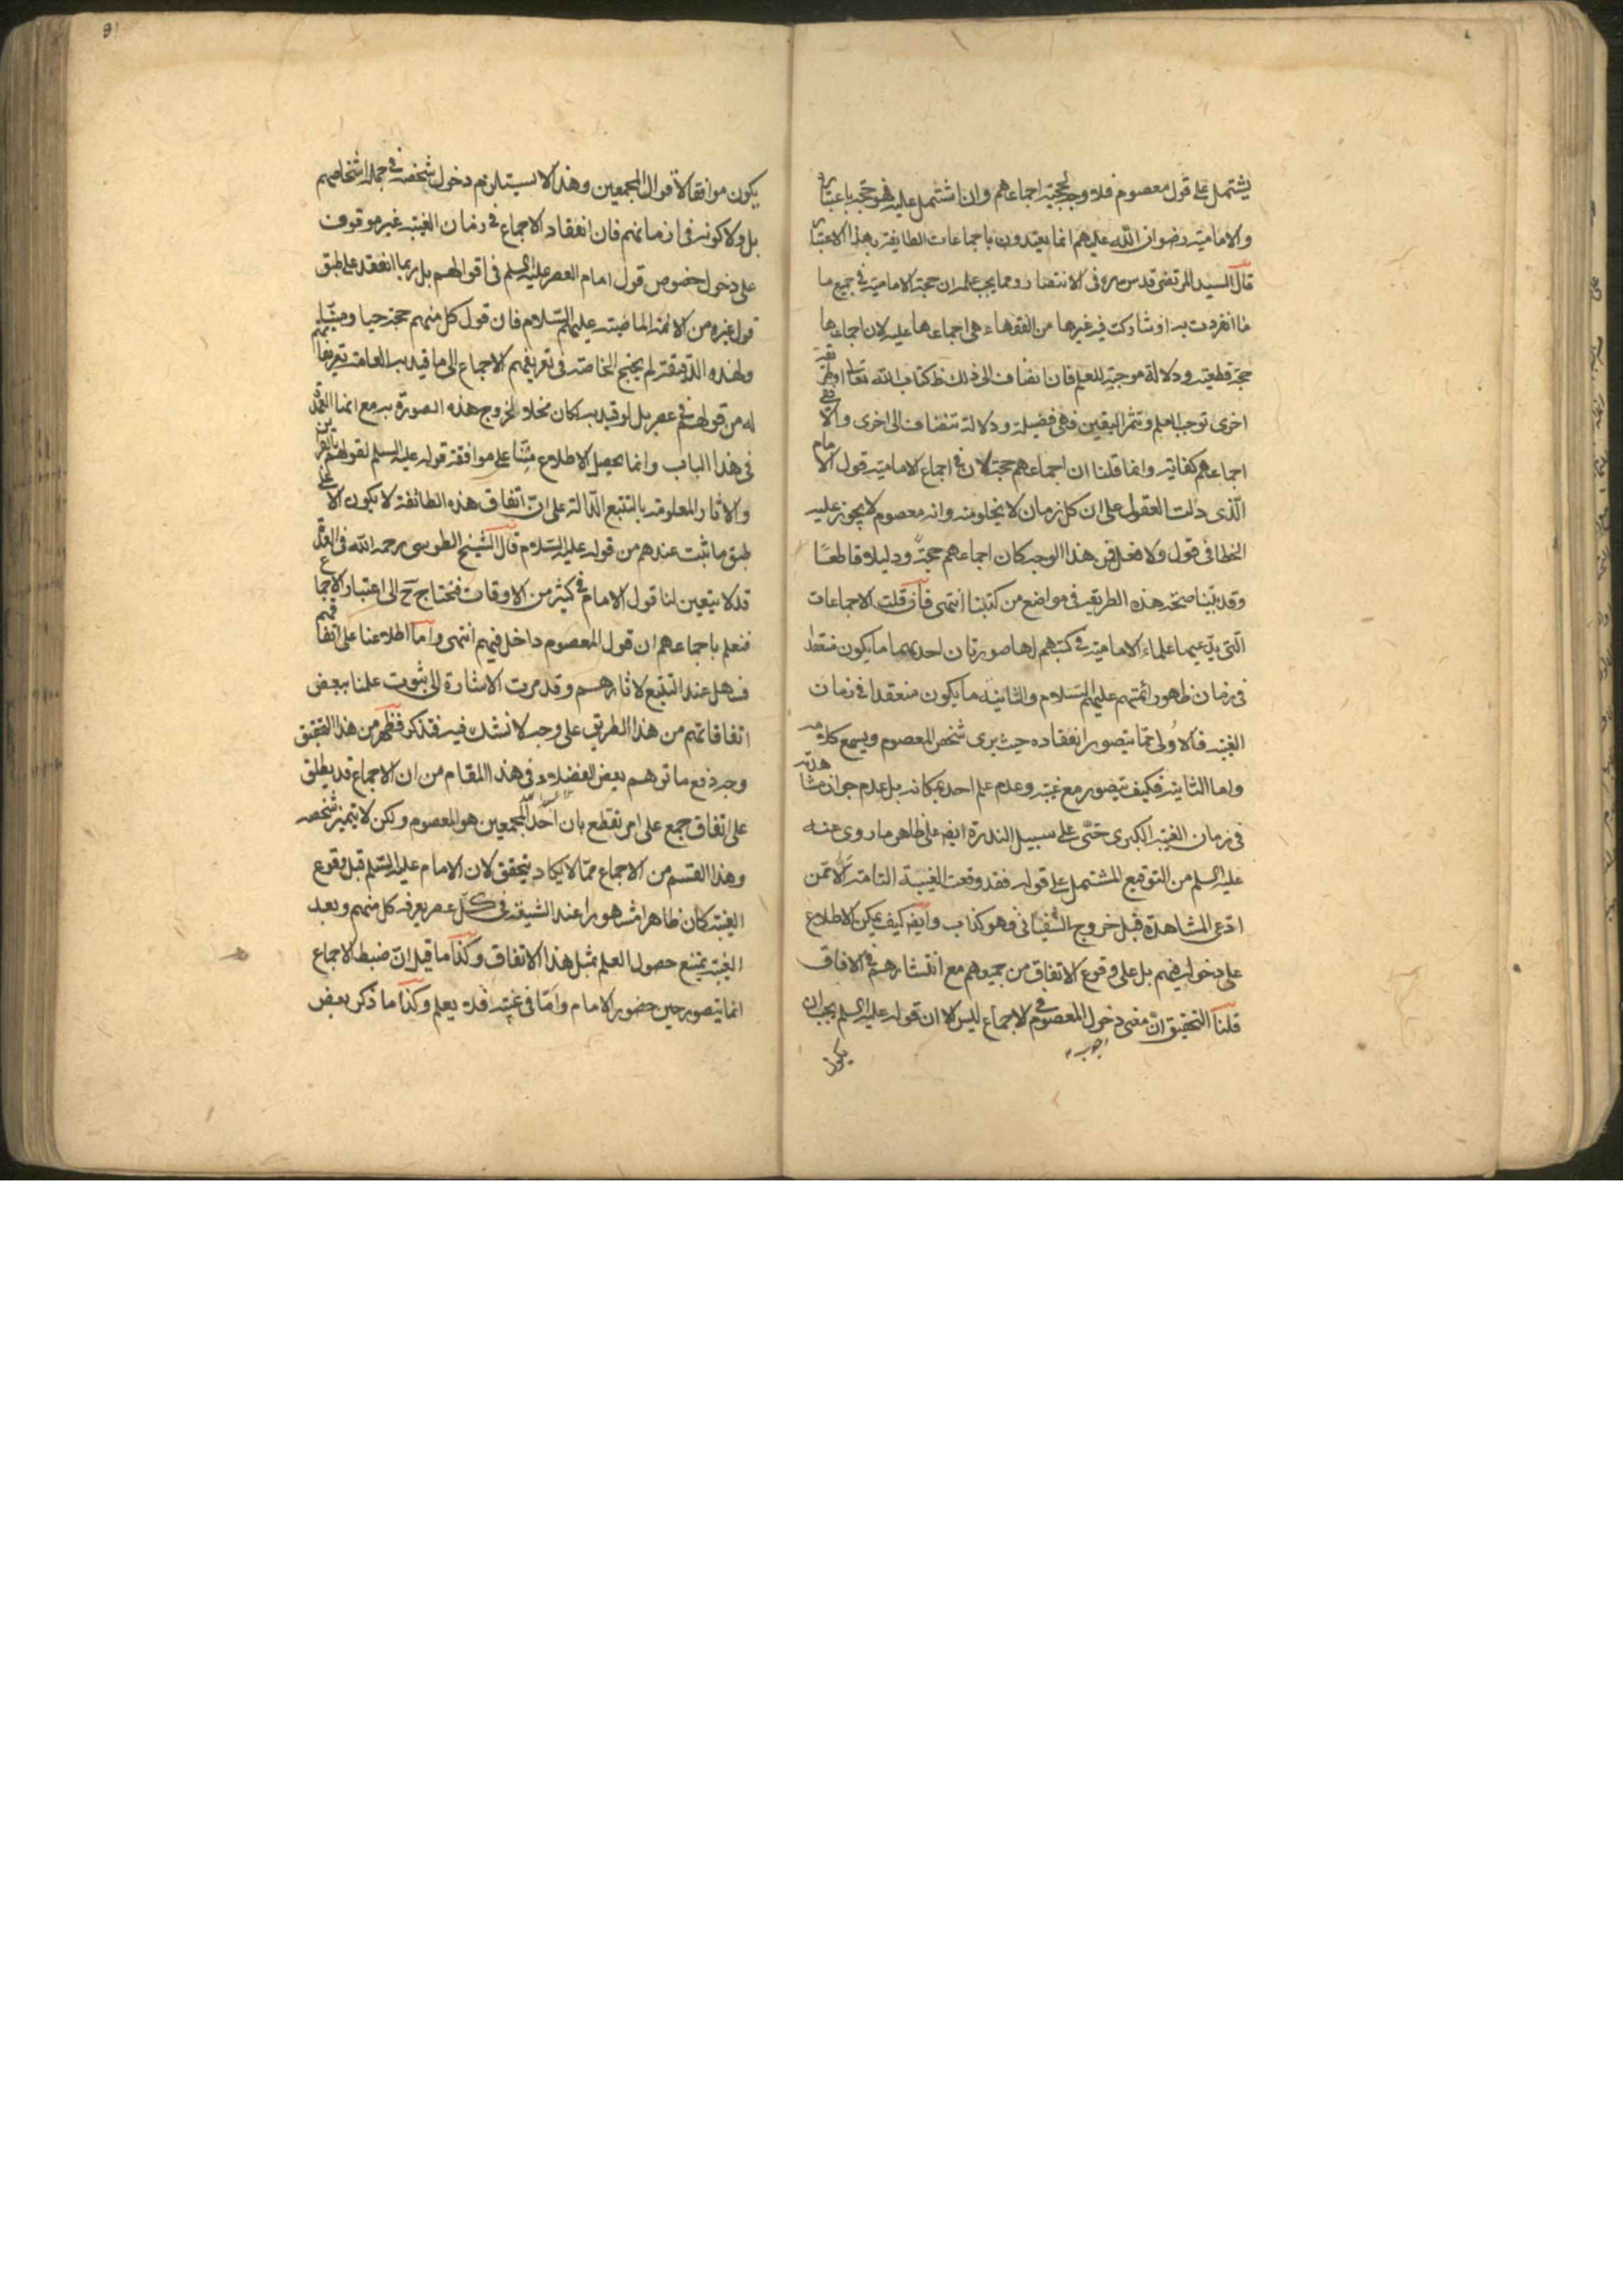 يشتمل على قول معصوم فلا وجه لحجية اجماعهم وان اشتمل عليه فهو حجة باعتباره
والامامية رضوان الله عليهم انما يعتدون باجماعات الطايفة بهذا الاعتبار
قال السيد المرتضى قدس سره في الانتصار ومما يجب علمه ان حجة الامامية في جميع ما
ما انفردت به او شاركت فيه غيرها من الفقهاء هي اجماعها عليه لان اجماعها
حجة قطعية ودلالة موجبة للعلم فان انضاف الى ذلك ظ كتاب الله تعالى او طريقة
اخرى توجب العلم وتثمر اليقين فهي فضيلة ودلالة تنضاف الى اخرى والا ففي
اجماعهم كفاية وانما قلنا ان اجماعهم حجة لان في اجماع الامامية قول الامام
الذى دلت العقول على ان كل زمان لا يخلو منه وانه معصوم لا يجوز عليه
الخطا في قول ولا فعل فمن هذا الوجه كان اجماعهم حجة ودليلا قاطعا
وقد بينا صحة هذه الطريقة في مواضع من كتبنا انتهى فان قلت الاجماعات
التي يدعيها علماء الامامية في كتبهم لها صورتان احديهما ما يكون منعقدا
في زمان ظهور ائمتهم عليهم السلام والثانية ما يكون منعقدا في زمان
الغيبة فالاولى مما يتصور انعقاده حيث يرى شخص المعصوم ويسمع كلامه
واما الثانية فكيف يتصور مع غيبته وعدم علم احد بمكانه بل عدم جواز مشاهدته
في زمان الغيبة الكبرى حتى على سبيل الندرة ايضا على ظاهر ما روى عنه
عليه السلم من التوقيع المشتمل على قوله فقد وقعت الغيبة التامة الا فمن
ادعى المشاهدة قبل خروج السفياني فهو كذاب وايضا كيف يمكن الاطلاع
على دخوله فيهم بل على وقوع الاتفاق من جميعهم مع انتشارهم في الافاق
قلنا التحقيق ان معنى دخول المعصوم في الاجماع ليس الا ان قوله عليه السلم يجب ان
يكون
يكون موافقا لاقوال المجمعين وهذا لا يستلزم دخول شخصه في جملة اشخاصهم
بل ولا كونه في ازمانهم فان انعقاد الاجماع في زمان الغيبة غير موقوف
على دخول خصوص قول امام العصر عليه السلم في اقوالهم بل ربما انعقد على طبق
قول غيره من الائمة الماضية عليهم السلام فان قول كل منهم حجة حيا وميتا
ولهذه الدقيقة لم يحتج الخاصة في تعريفهم الاجماع الى ما قيد به العامة تعريفاتهم
له من قولهم في عصر بل لو قيد به كان مخلا لخروج هذه الصورة به مع انها العمدة
في هذا الباب وانما يحصل الاطلاع منا على موافقة قوله عليه السلم لقولهم بالقراين
والاثار المعلومة بالتتبع الدالة على ان اتفاق هذه الطائفة لا يكون الا على
طبق ما ثبت عندهم من قوله عليه السلام قال الشيخ الطوسي رحمه الله في العدة
قد لا يتعين لنا قول الامام في كثير من الاوقات فنحتاج ح الى اعتبار الاجماع
فنعلم باجماعهم ان قول المعصوم داخل فيهم انتهى واما اطلاعنا على اتفاقهم
فسهل عند التتبع لاثارهم وقد مرت الاشارة الى ثبوت علمنا ببعض
اتفاقاتهم من هذا الطريق على وجه لا نشك فيه فتذكر فظهر من هذا التحقيق
وجه دفع ما توهم بعض الفضلاء في هذا المقام من ان الاجماع قد يطلق
على اتفاق جمع على امر نقطع بان احد المجمعين هو المعصوم ولكن لا يتميز شخصه
وهذا القسم من الاجماع مما لا يكاد يتحقق لان الامام عليه السلم قبل وقوع
الغيبة كان ظاهرا مشهورا عند الشيعة في كل عصر يعرفه كل منهم وبعد
الغيبة يمتنع حصول العلم بمثل هذا الاتفاق وكذا ما قيل ان ضبط الاجماع
انما يتصور حين حضور الامام واما في غيبته فلا يعلم وكذا ما ذكر بعض